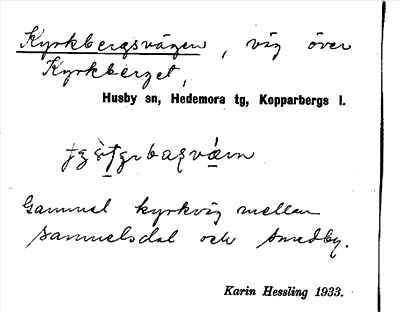 Kyrkbergsvägen, väg över
Kyrkberget,
Husby sn, Hedemora tg, Kopparbergs l.
Gammal kyrkväg mellan
Samuelsdal och Smedby.
Karin Hessling 1933.